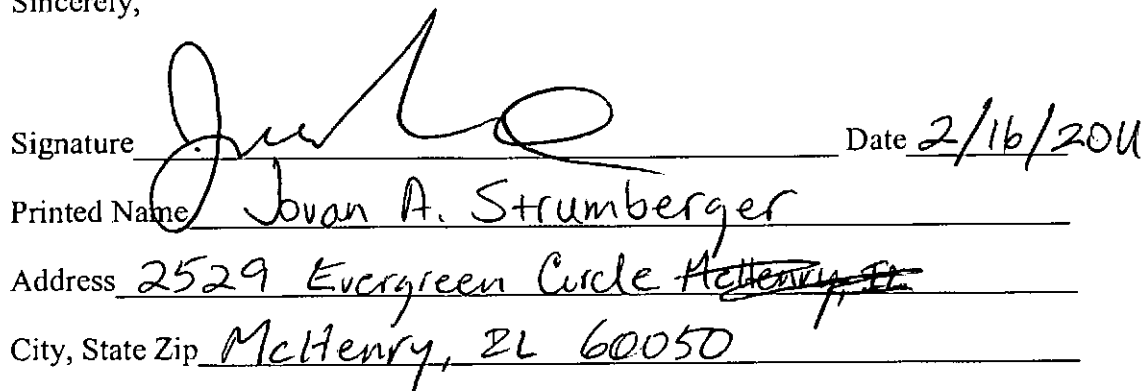 Sincerely,
Signature Date 2/16/2011
Printed Name Jovan A. Strumberger
Address 2529 Evergreen Circle McHenry, IL
City, State Zip McHenry, IL 60050